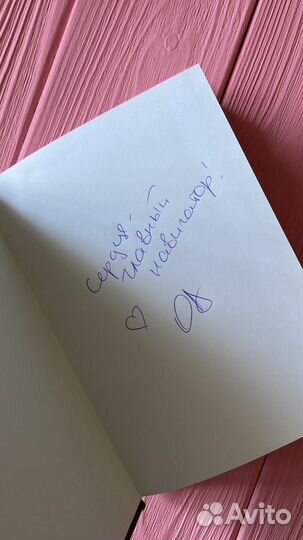 сердце -
главный
навигатор!
Avito